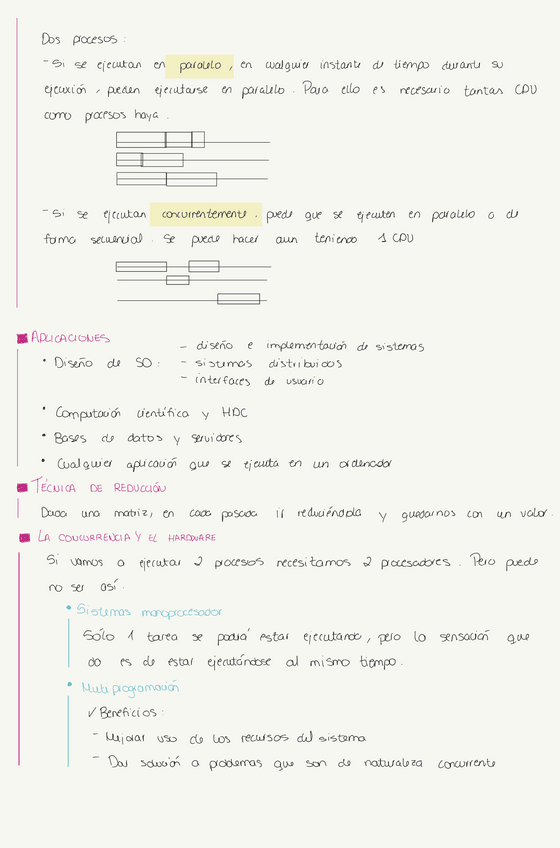 Dos procesos :
- Si se ejecutan en paralelo , en cualquier instante de tiempo durante su
ejecución , pueden ejecutarse en paralelo . Para ello es necesario tantas CPU
como procesos haya .
- Si se ejecutan concurrentemente , puede que se ejecuten en paralelo o de
forma secuencial . Se puede hacer aun teniendo 1 CPU
APLICACIONES
• Diseño de SO :
- diseño e implementación de sistemas
- sistemas distribuidos
- interfaces de usuario
• Computación científica y HDC
• Bases de datos y servidores
• Cualquier aplicación que se ejecuta en un ordenador
TÉCNICA DE REDUCCIÓN
Dada una matriz, en cada pasada ir reduciéndola y quedarnos con un valor.
LA CONCURRENCIA Y EL HARDWARE
Si vamos a ejecutar 2 procesos necesitamos 2 procesadores . Pero puede
no ser así .
• Sistemas monoprocesador
Sólo 1 tarea se podrá estar ejecutando, pero la sensación que
da es de estar ejecutándose al mismo tiempo .
• Multiprogramación
✓ Beneficios :
- Mejorar uso de los recursos del sistema
- Dar solución a problemas que son de naturaleza concurrente